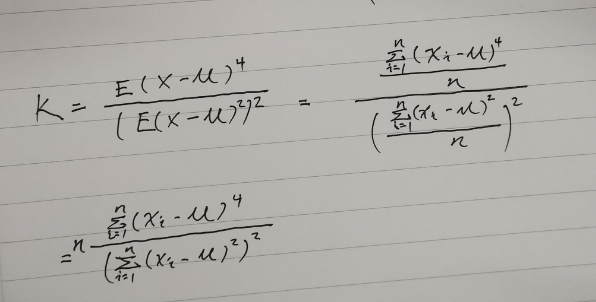 K = \frac{E(X-μ)^4}{(E(X-μ)^2)^2} = \frac{\frac{\sum_{i=1}^{n}(x_i-μ)^4}{n}}{\left(\frac{\sum_{i=1}^{n}(x_i-μ)^2}{n}\right)^2}
= n \frac{\sum_{i=1}^{n}(x_i-μ)^4}{(\sum_{i=1}^{n}(x_i-μ)^2)^2}